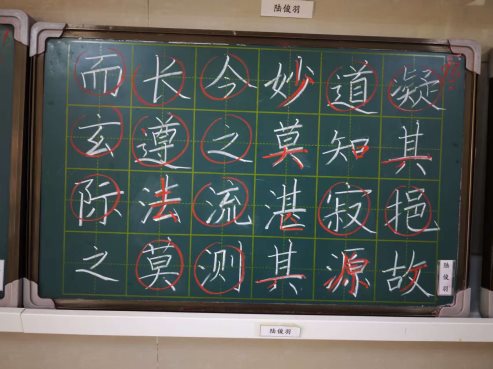 陆俊羽
而长今妙道凝
玄遵之莫知其
际法流湛寂挹
之莫测其源故
陆俊羽
陆俊羽